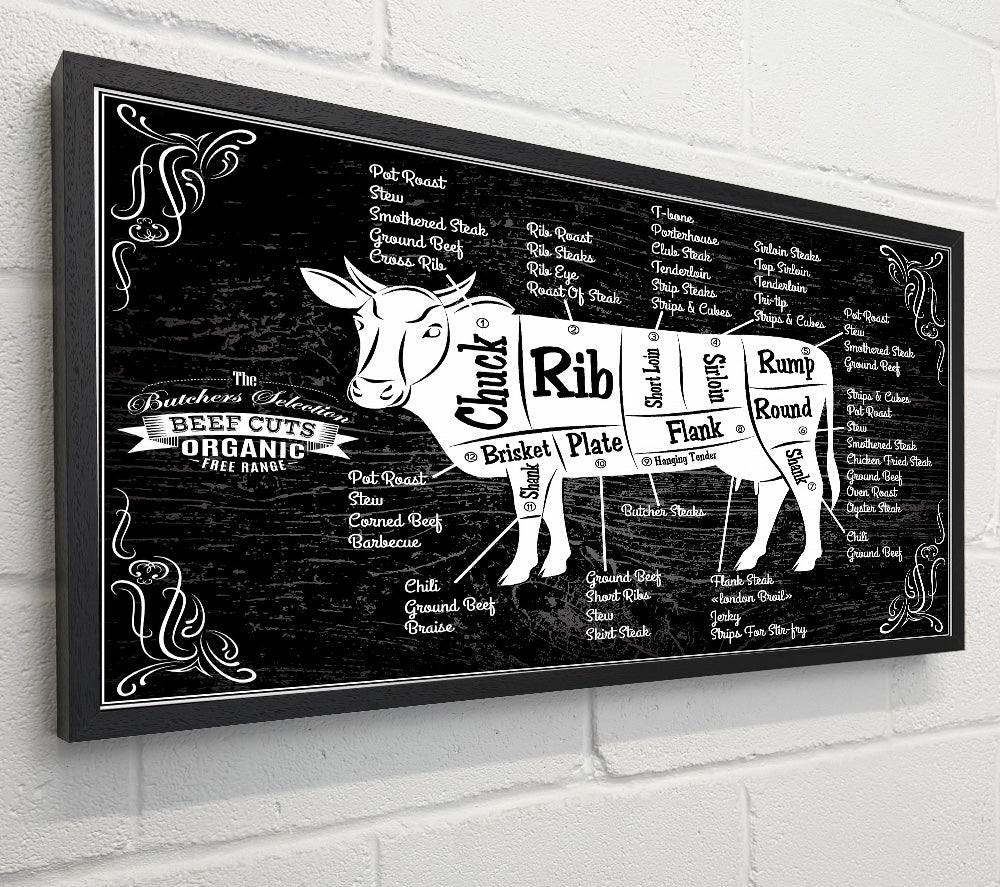 Pot Roast
Stew
Smothered Steak
Ground Beef
Cross Rib
Rib Roast
Rib Steaks
Rib Eye
Roast Of Steak
T-bone
Porterhouse
Club Steak
Tenderloin
Strip Steaks
Strips & Cubes
Sirloin Steaks
Top Sirloin
Tenderloin
Tri-tip
Strips & Cubes
Pot Roast
Stew
Smothered Steak
Ground Beef
Strips & Cubes
Pot Roast
Stew
Smothered Steak
Chicken Fried Steak
Ground Beef
Oven Roast
Oyster Steak
Chili
Ground Beef
The
Butchers Selection
BEEF CUTS
ORGANIC
FREE RANGE
1
Chuck
2
Rib
3
Short Loin
4
Sirloin
5
Rump
Round
6
Flank 8
12 Brisket
Plate
10
9 Hanging Tender
Shank
11
Shank
7
Pot Roast
Stew
Corned Beef
Barbecue
Chili
Ground Beef
Braise
Ground Beef
Short Ribs
Stew
Skirt Steak
Butcher Steaks
Flank Steak
«london Broil»
Jerky
Strips For Stir-fry